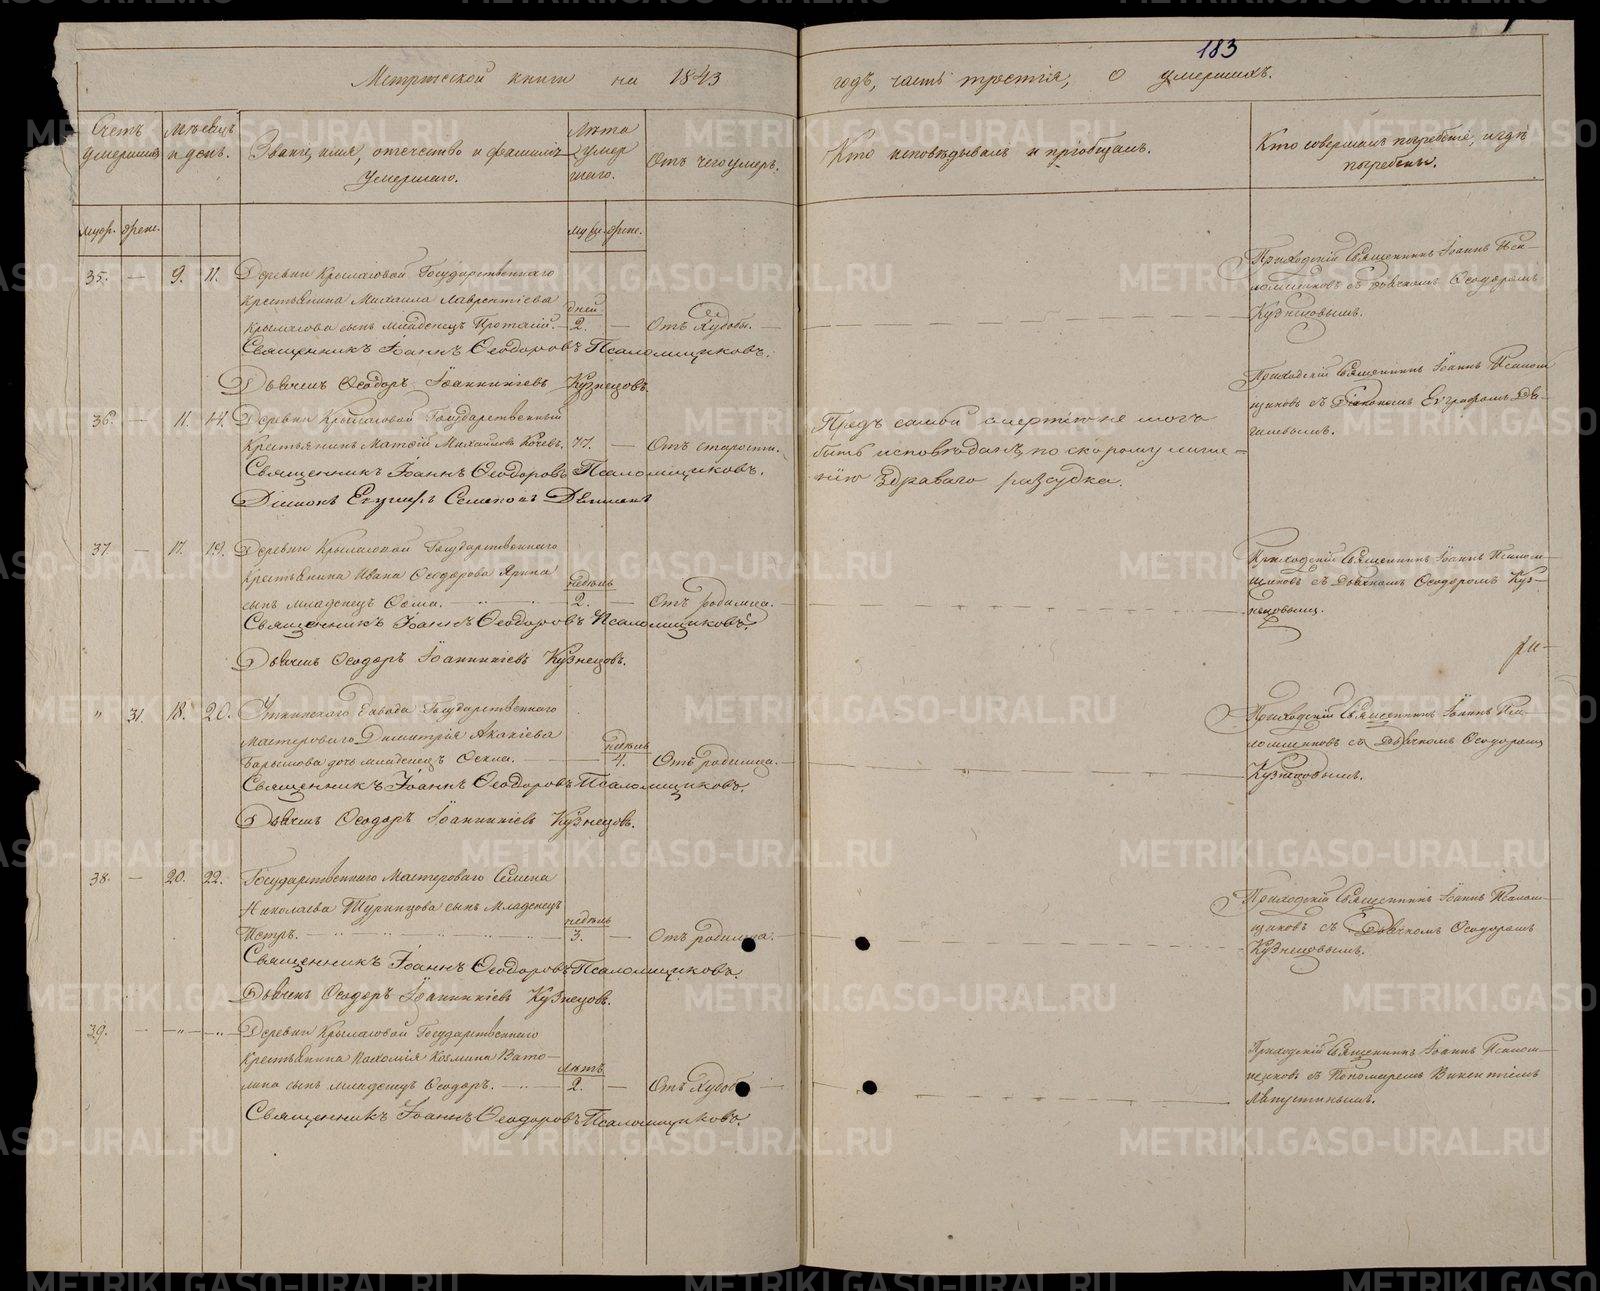 183
Метрической книги на 1843 годъ, часть третія, о умершихъ.
Счетъ умершихъ
Мѣсяцъ и день.
Званіе, имя, отчество и фамилія умершаго.
Лѣта умер шаго.
Отъ чего умеръ.
Кто исповѣдывалъ и пріобщалъ.
Кто совершалъ погребеніе, и гдѣ погребены.
мужс. женс.
муж. женс.
35. — 9. 11. Деревни Крыласовой Государственнаго
крестьянина Михаила Лаврентіева
дней
Крыласова сынъ младенецъ Протасій. — 2. — Отъ худобы. —
Священникъ Іоаннъ Ѳеодоровъ Псаломщиковъ.
Дьячекъ Ѳеодоръ Іоанникіевъ Кузнецовъ.
Приходскій Священникъ Іоаннъ Пса-
ломщиковъ съ дьячкомъ Ѳеодоромъ
Кузнецовымъ.
36. — 11. 14. Деревни Крыласовой Государственный
Крестьянинъ Матѳій Михайловъ 77. — Отъ старости.
Священникъ Іоаннъ Ѳеодоровъ Псаломщиковъ.
Діаконъ Евграфъ Семеновъ
Предъ самой смертію не могъ
быть исповѣданъ, по скорому лише-
нію здраваго разсудка.
Приходскій Священникъ Іоаннъ Псалом
щиковъ съ Діакономъ Евграфомъ
37. — 17. 19. Деревни Крыласовой Государственнаго
крестьянина Ивана Ѳеодорова
недѣль
сынъ младенецъ Ѳома. — 2. — Отъ родимца. —
Священникъ Іоаннъ Ѳеодоровъ Псаломщиковъ.
Дьячекъ Ѳеодоръ Іоанникіевъ Кузнецовъ.
Приходскій Священникъ Іоаннъ Псалом-
щиковъ съ Дьячкомъ Ѳеодоромъ Куз-
нецовымъ.
" 31. 18. 20. Уткинскаго Завода Государственнаго
мастероваго Димитрія Акакіева
недѣль
дочь младенецъ Ѳекла. — 4. Отъ родимца. —
Священникъ Іоаннъ Ѳеодоровъ Псаломщиковъ.
Дьячекъ Ѳеодоръ Іоанникіевъ Кузнецовъ.
Приходскій Священникъ Іоаннъ Пса-
ломщиковъ съ Дьячкомъ Ѳеодоромъ
Кузнецовымъ.
38. — 20. 22. Государственнаго Мастероваго Семена
Николаева Турынцова сынъ Младенецъ
недѣль
Петръ. — 3. — Отъ родимца. —
Священникъ Іоаннъ Ѳеодоровъ Псаломщиковъ.
Дьячекъ Ѳеодоръ Іоанникіевъ Кузнецовъ.
Приходскій Священникъ Іоаннъ Псалом-
щиковъ съ Дьячкомъ Ѳеодоромъ
Кузнецовымъ.
39. — " — " — Деревни Крыласовой Государственнаго
Крестьянина Пахомія Козмина Вато-
лѣтъ
лина сынъ младенецъ Ѳеодоръ. — 2. — Отъ худобы
Священникъ Іоаннъ Ѳеодоровъ Псаломщиковъ.
Приходскій Священникъ Іоаннъ Псалом-
щиковъ съ Пономаремъ Викентіемъ
METRIKI.GASO-URAL.RU